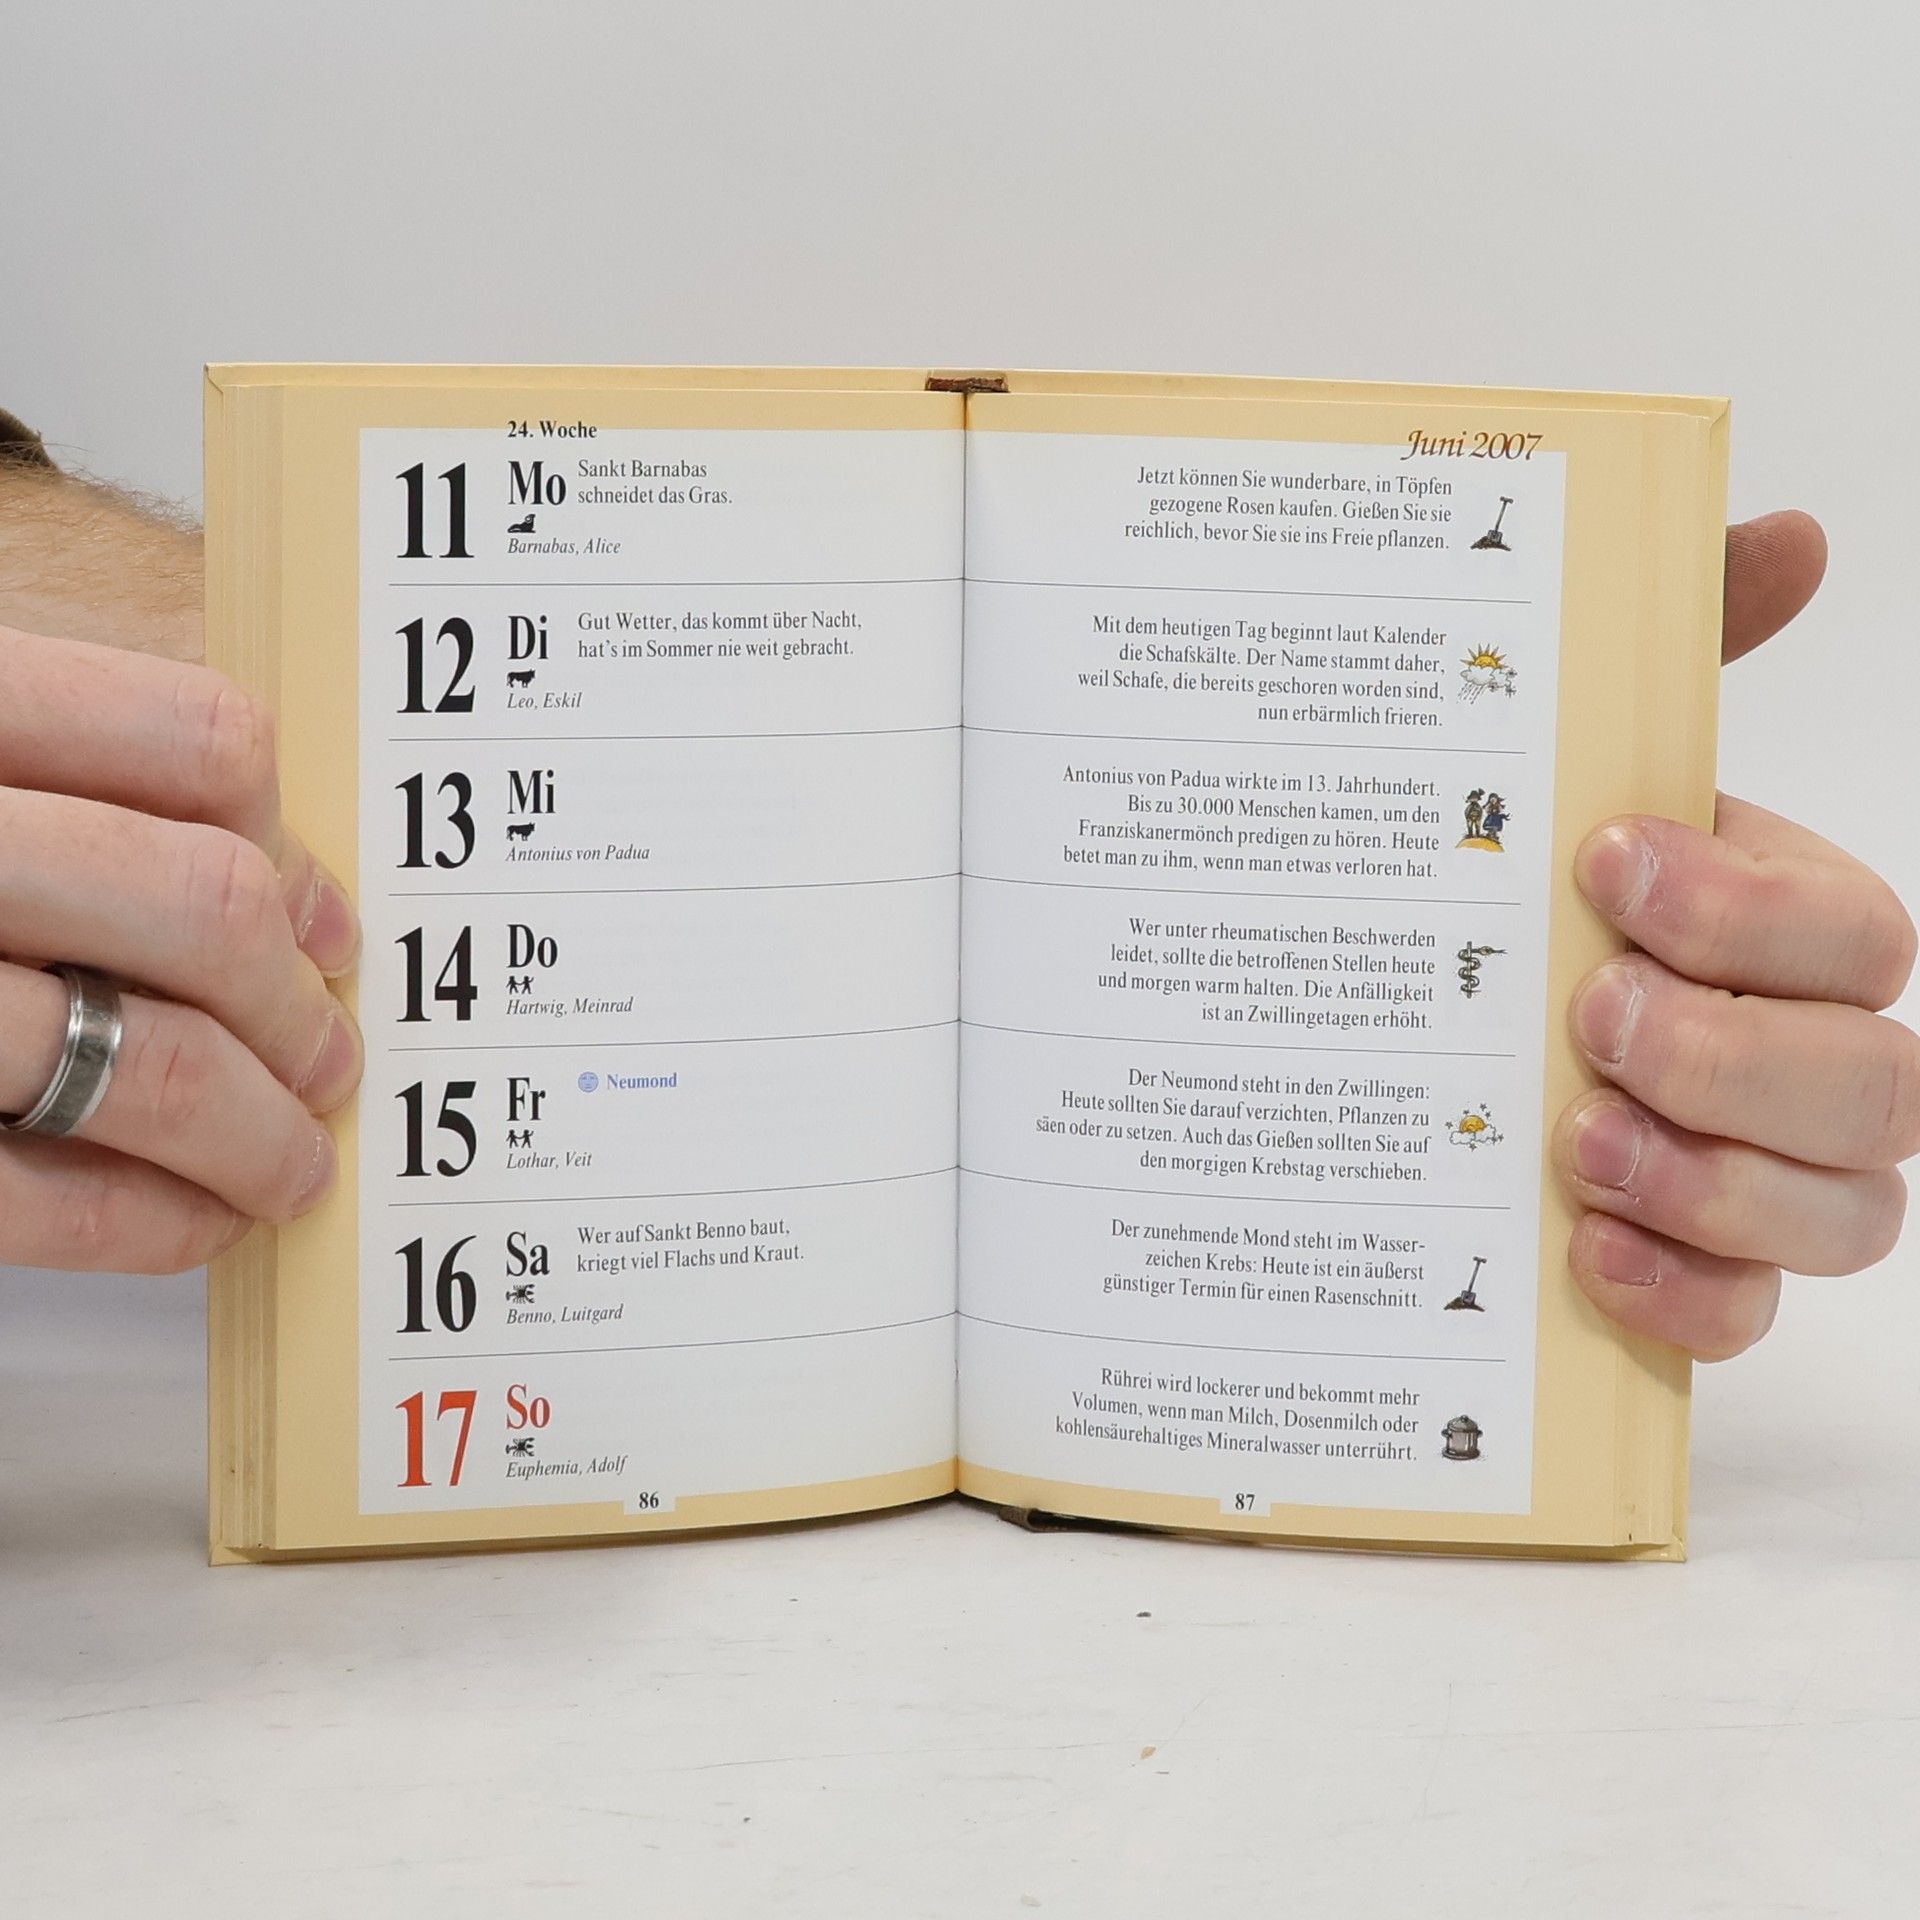 24. Woche
11 Mo Sankt Barnabas
schneidet das Gras.
Barnabas, Alice
12 Di Gut Wetter, das kommt über Nacht,
hat's im Sommer nie weit gebracht.
Leo, Eskil
13 Mi
Antonius von Padua
14 Do
Hartwig, Meinrad
15 Fr Neumond
Lothar, Veit
16 Sa Wer auf Sankt Benno baut,
kriegt viel Flachs und Kraut.
Benno, Luitgard
17 So
Euphemia, Adolf
86
Juni 2007
Jetzt können Sie wunderbare, in Töpfen
gezogene Rosen kaufen. Gießen Sie sie
reichlich, bevor Sie sie ins Freie pflanzen.
Mit dem heutigen Tag beginnt laut Kalender
die Schafskälte. Der Name stammt daher,
weil Schafe, die bereits geschoren worden sind,
nun erbärmlich frieren.
Antonius von Padua wirkte im 13. Jahrhundert.
Bis zu 30.000 Menschen kamen, um den
Franziskanermönch predigen zu hören. Heute
betet man zu ihm, wenn man etwas verloren hat.
Wer unter rheumatischen Beschwerden
leidet, sollte die betroffenen Stellen heute
und morgen warm halten. Die Anfälligkeit
ist an Zwillingetagen erhöht.
Der Neumond steht in den Zwillingen:
Heute sollten Sie darauf verzichten, Pflanzen zu
säen oder zu setzen. Auch das Gießen sollten Sie auf
den morgigen Krebstag verschieben.
Der zunehmende Mond steht im Wasser-
zeichen Krebs: Heute ist ein äußerst
günstiger Termin für einen Rasenschnitt.
Rührei wird lockerer und bekommt mehr
Volumen, wenn man Milch, Dosenmilch oder
kohlensäurehaltiges Mineralwasser unterrührt.
87